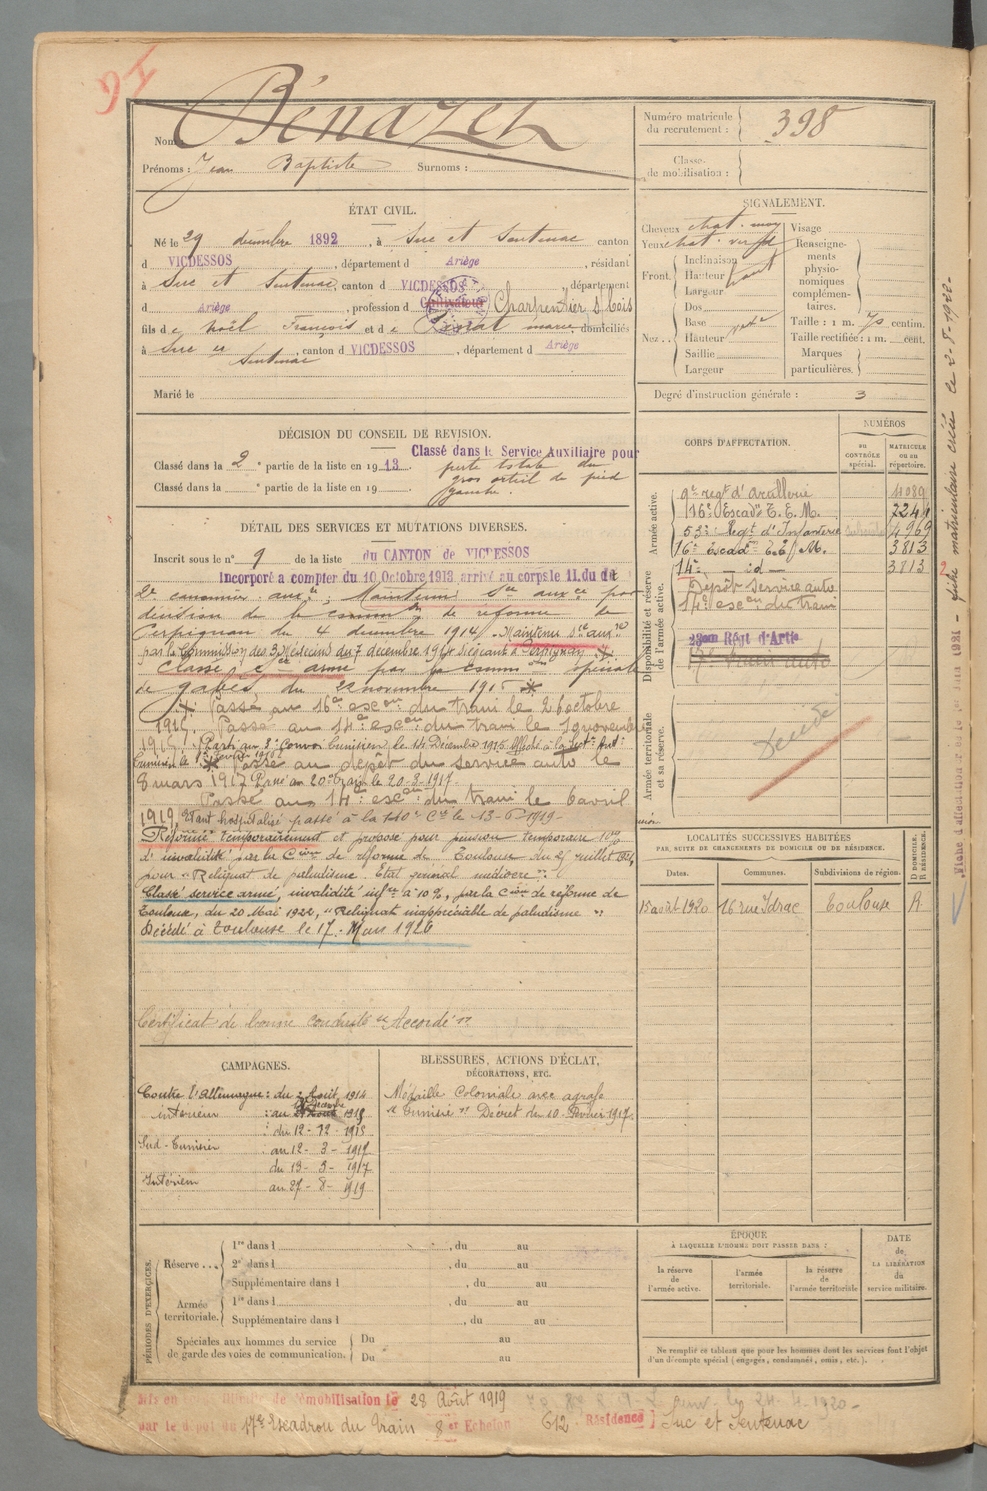 Bénazet
Nom
Prénoms : Jean Baptiste Surnoms :
Numéro matricule du recrutement : 398
Classe de mobilisation :
ÉTAT CIVIL.
Né le 29 décembre 1892, à Suc et Sentenac canton
d VICDESSOS, département d Ariège, résidant
à Suc et Sentenac, canton d VICDESSOS département
d Ariège, profession d Cultivateur Charpentier s. bois
fils de Noël François et de marie domiciliés
à Suc et Sentenac, canton d VICDESSOS, département d Ariège
Marié le
SIGNALEMENT.
Cheveux chat. moy
Yeux chat. verd
Front.
Inclinaison
Hauteur haut
Largeur
Dos
Nez..
Base
Hauteur
Saillie
Largeur
Visage
Renseignements physionomiques complémentaires.
Taille : 1 m. 70 centim.
Taille rectifiée : 1 m. cent.
Marques particulières.
Degré d'instruction générale : 3
DÉCISION DU CONSEIL DE REVISION.
Classé dans la 2e partie de la liste en 1913. Classé dans le Service Auxiliaire pour
perte totale du gros orteil du pied gauche.
Classé dans la e partie de la liste en 19
DÉTAIL DES SERVICES ET MUTATIONS DIVERSES.
Inscrit sous le n° 9 de la liste du CANTON de VICDESSOS
Incorporé à compter du 10 Octobre 1913, arrivé au corps le 11 du dit
2e canonnier aux. Maintenu Sce auxre par
décision de la common de réforme de
Perpignan du 4 décembre 1914. Maintenu Sce auxre
par la Commission des 3 Médecins du 7 décembre 1914 siégeant à Perpignan
Classé sce armé par la common spéciale
de gabès du 22 novembre 1915
Passé au 16e escon du train le 26 octobre
1915. Passé au 14e escon du train le 19 novembre
1915. Parti au 3e Convoi Tunisien le 14 Décembre 1915
Passé au dépôt du service auto le
8 mars 1917 Passé au 20e train le 20-3-1917.
Passé au 14e escon du train le 6 avril
1919. Etant hospitalisé passé à la 140e Cie le 13-6-1919-
Réformé temporairement et proposé pour pension temporaire 10%
d'invalidité par la Cion de réforme de Toulouse du 25 juillet 1921,
pour "Reliquat de paludisme. Etat général médiocre".
Classé service armé, invalidité infre à 10%, par la Cion de réforme de
Toulouse, du 20 Mai 1922, "Reliquat inappréciable de paludisme".
Décédé à Toulouse le 17 Mars 1926
Certificat de bonne conduite "Accordé"
CORPS D'AFFECTATION.
NUMÉROS
au CONTRÔLE spécial.
MATRICULE ou au répertoire.
Armée active.
9e regt d'artillerie 4089
16e Escadon T. E. M. 7241
53e Regt d'Infanterie 4969
16e Escadon T. E. M. 3813
14e - id - 3813
Disponibilité et réserve de l'armée active.
Dépôt Service auto
14e escon du train
Régt d'Artie
Train auto
Armée territoriale et sa réserve.
Décédé
LOCALITÉS SUCCESSIVES HABITÉES
PAR SUITE DE CHANGEMENTS DE DOMICILE OU DE RÉSIDENCE.
Dates. Communes. Subdivisions de région. D. DOMICILE. R. RÉSIDENCE.
15 août 1920 16 rue Idrac Toulouse R
CAMPAGNES.
Contre l'Allemagne : du 2 Août 1914
intérieur : au 11 Décembre 1915
: du 12-12-1915
Sud-Tunisien au 12-3-1917
du 13-3-1917
Intérieur au 27-8-1919
BLESSURES, ACTIONS D'ÉCLAT,
DÉCORATIONS, ETC.
Médaille Coloniale avec agrafe
"Tunisie" Décret du 10 Février 1917.
PÉRIODES D'EXERCICES.
Réserve ....
1re dans l , du au
2e dans l , du au
Supplémentaire dans l , du au
Armée territoriale.
1re dans l , du au
Supplémentaire dans l , du au
Spéciales aux hommes du service de garde des voies de communication.
Du au
Du au
ÉPOQUE
À LAQUELLE L'HOMME DOIT PASSER DANS :
la réserve de l'armée active.
l'armée territoriale.
la réserve de l'armée territoriale
DATE de LA LIBÉRATION du service militaire.
Ne remplir ce tableau que pour les hommes dont les services font l'objet
d'un décompte spécial (engagés, condamnés, omis, etc.).
Mis en de démobilisation le 28 Août 1919
par le dépôt du 17e Escadron du Train 8e Echelon 612 Résidence] Suc et Sentenac
Fiche matriculaire créée le 2-8-1922-